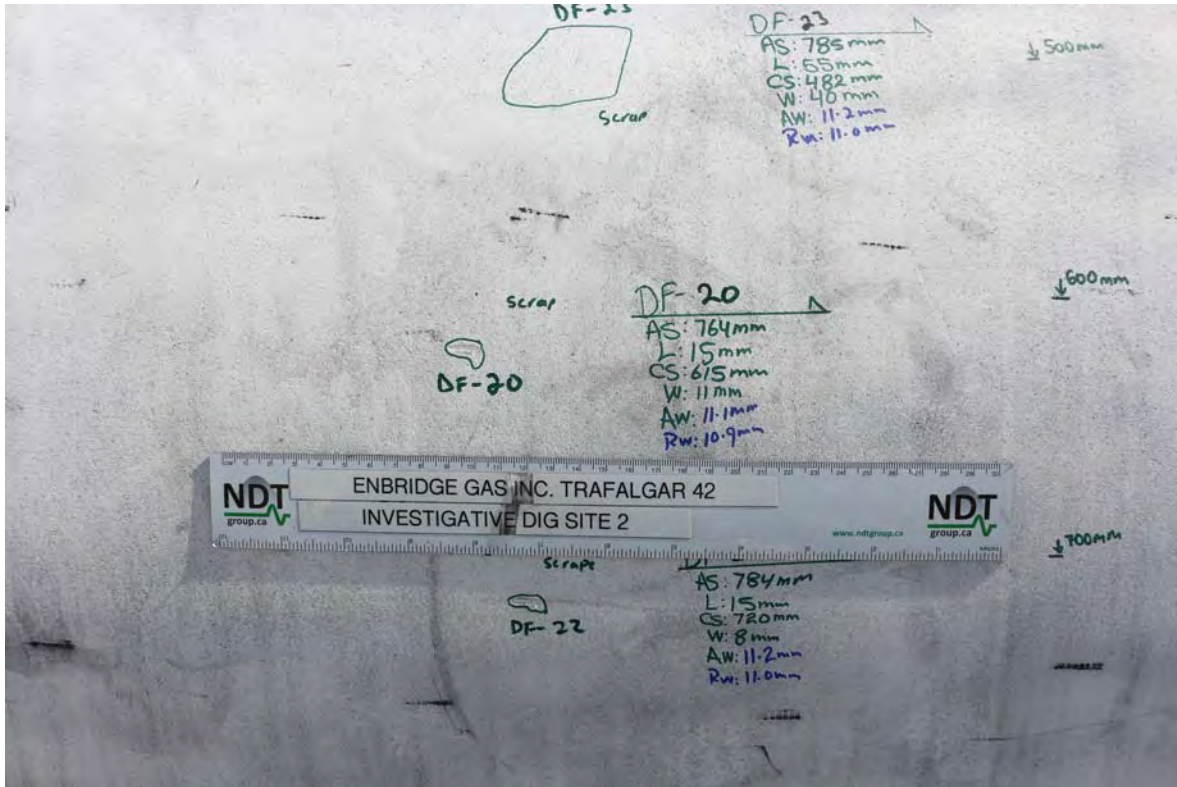 DF-23
Scrap
DF-23
AS: 785mm
L: 55mm
CS: 482mm
W: 40mm
AW: 11.2mm
RW: 11.0mm
500mm
Scrap
DF-20
DF-20
AS: 764mm
L: 15mm
CS: 615mm
W: 11mm
AW: 11.1mm
RW: 10.9mm
600mm
NDT
group.ca
ENBRIDGE GAS INC. TRAFALGAR 42
INVESTIGATIVE DIG SITE 2
www.ndtgroup.ca
NDT
group.ca
700mm
Scrape
DF-22
AS: 784mm
L: 15mm
CS: 720mm
W: 8mm
AW: 11.2mm
RW: 11.0mm